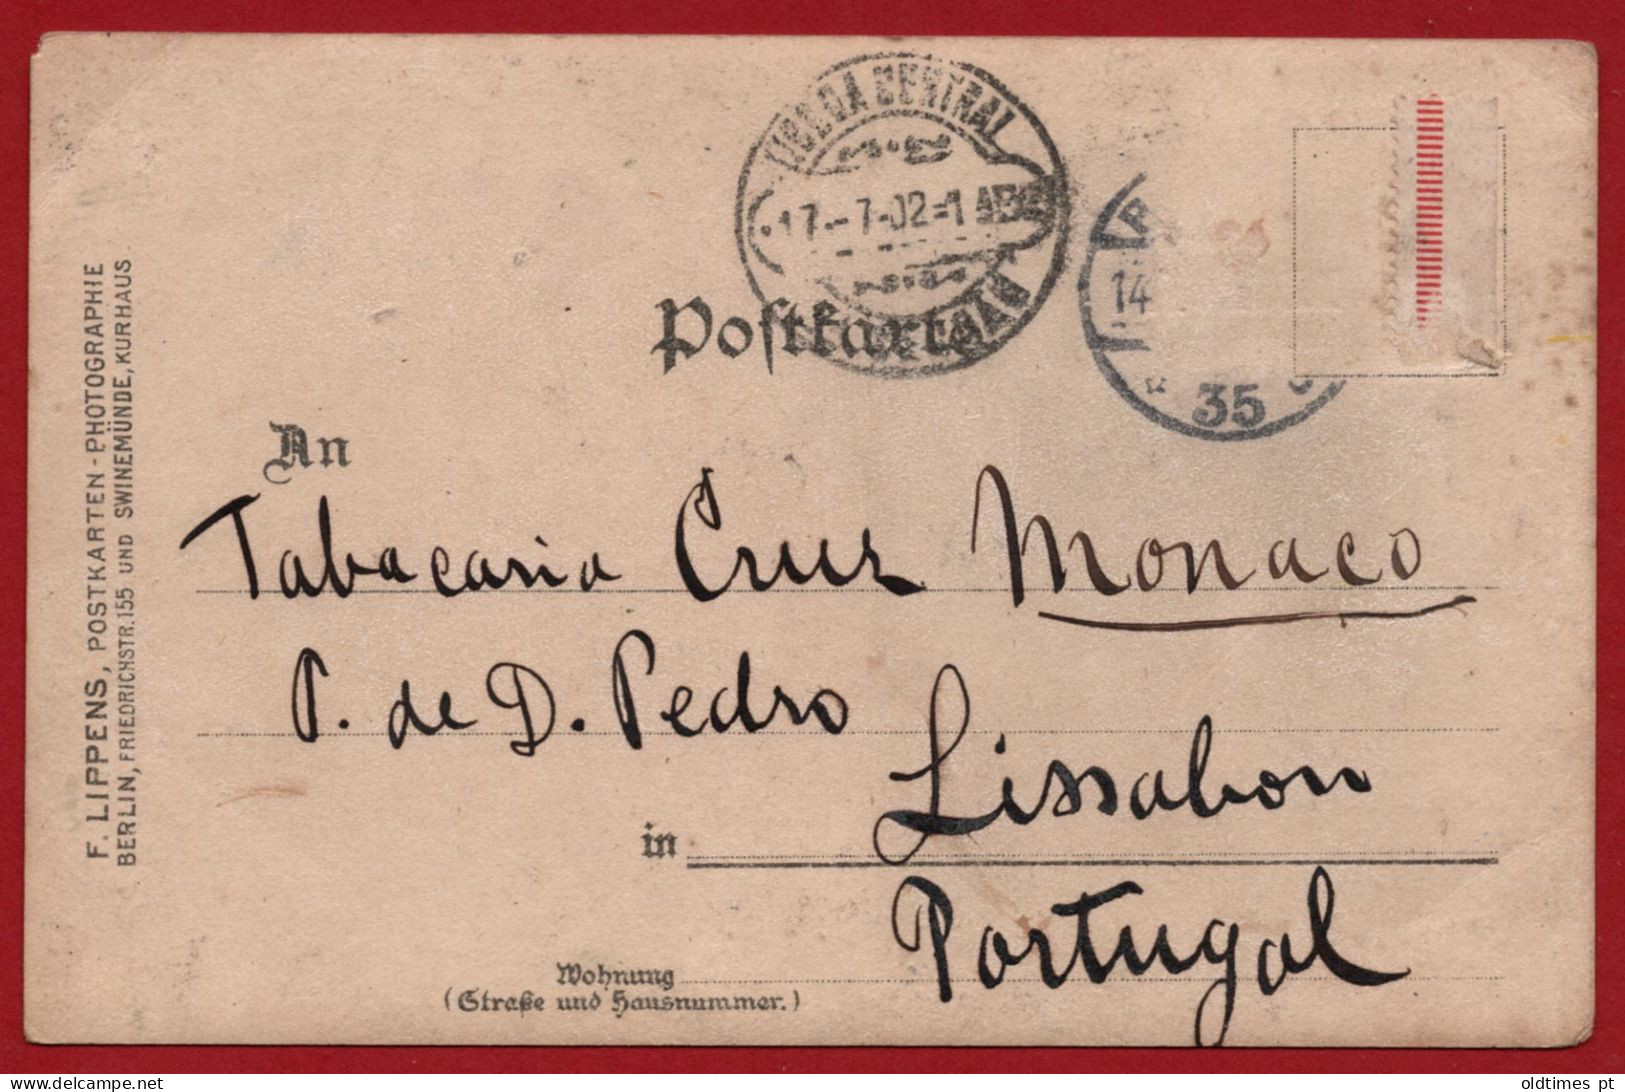 F. LIPPENS, POSTKARTEN-PHOTOGRAPHIE
BERLIN, FRIEDRICHSTR. 155 UND SWINEMÜNDE, KURHAUS.
LISBOA CENTRAL
17-7-02=1
Postkarte
14
35
An
Tabacaria Cruz Monaco
P. de D. Pedro
Lissabon
in
Portugal
Wohnung
(Straße und Hausnummer.)
oldtimes pt